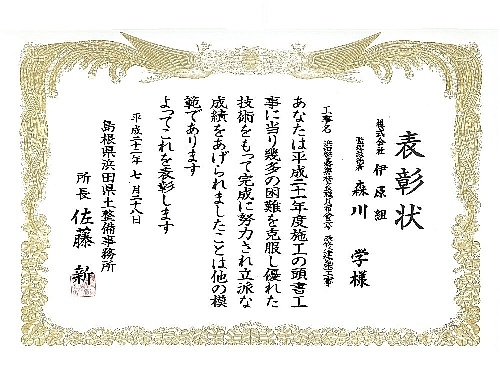 表彰状
株式会社 伊原組
監理技術者 森川 学様
工事名
あなたは平成二十一年度施工の頭書工
事に当り幾多の困難を克服し優れた
技術をもって完成に努力され立派な
成績をあげられましたことは他の模
範であります
よってこれを表彰します
平成二十二年七月二十八日
島根県浜田県土整備事務所
所長 佐藤 新